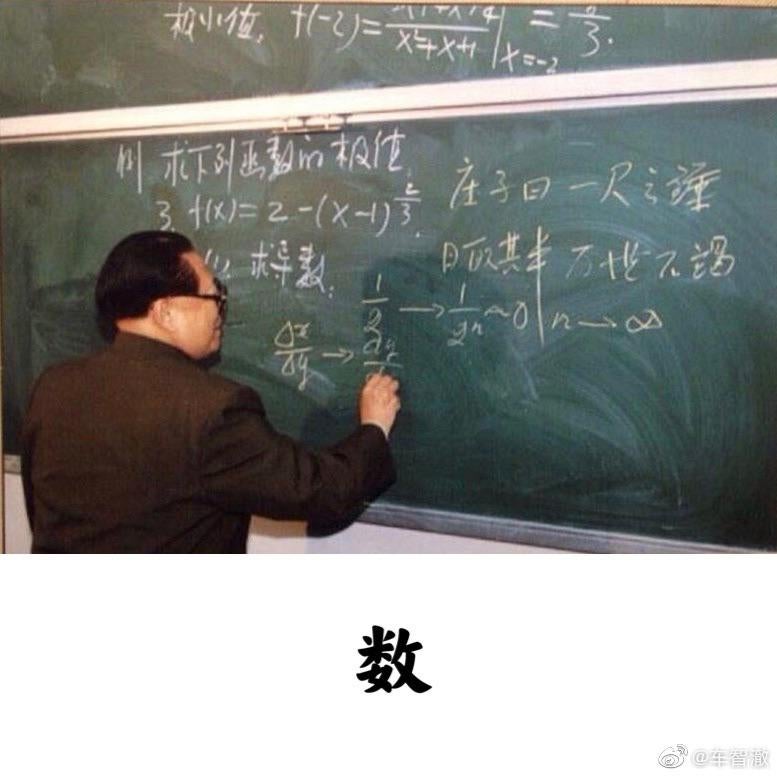 极小值, f(-2) = / x²+x+1 | x=-2 = /3.
例 求下列函数的极值
3. f(x) = 2 - (x-1)^{2/3}.
求导数:
庄子曰 一尺之棰
日取其半 万世不竭
1/2 → 1/2ⁿ ~ 0 | n → ∞
Δx/Δy → dy/d
数
@车智澈